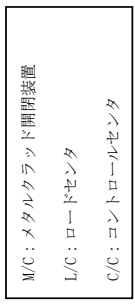 M/C：メタルクラッド開閉装置
L/C：ロードセンタ
C/C：コントロールセンタ